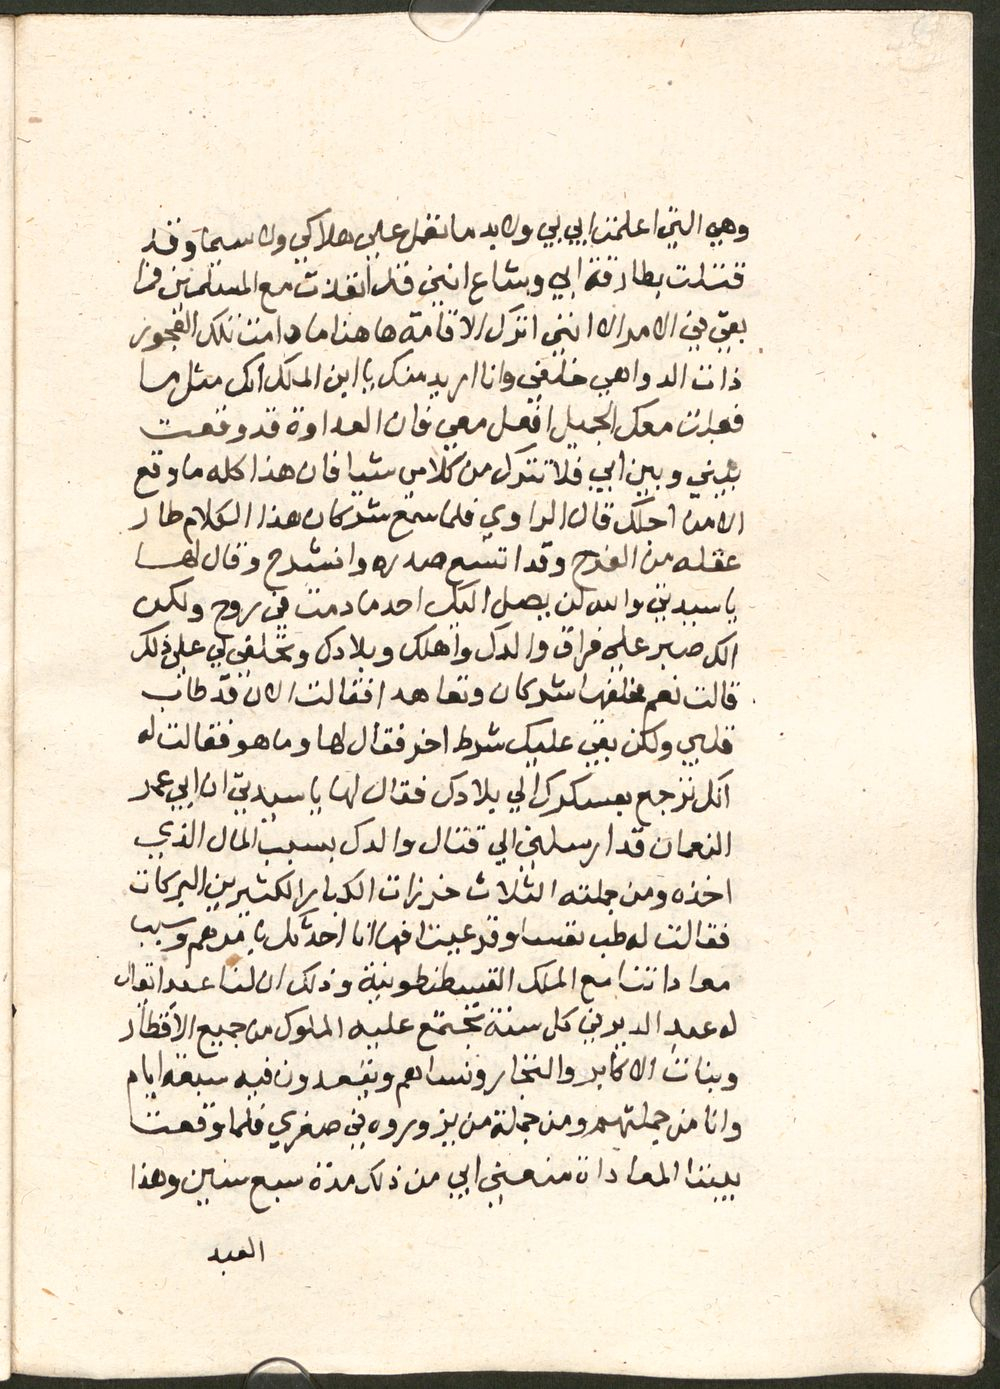 وهي التي اعلمت ابي بي ولا بد ما تعمل علي هلاكي ولا سيما وقد
قتلت بطارقة ابي وشاع انني قد انفذت مع المسلمين فما
بقي في الامر الا انني اترك الاقامة ها هنا ما دامت تلك العجوز
ذات الدواهي خلفي وانا اريد منك يا ابن الملك انك مثل ما
فعلت معك الجميل افعل معي فان العداوة قد وقعت
بيني وبين ابي فلا تترك من كلامي شيا فان هذا كله ما وقع
الا من اجلك قال الراوي فلما سمع شركان هذا الكلام طار
عقله من الفرح وقد اتسع صدره وانشرح وقال لها
يا سيدتي والله لن يصل اليك احد ما دمت في روح ولكن
الك صبر علي فراق والدك واهلك وبلادك وتحلفي لي علي ذلك
قالت نعم فحلفها شركان وتعاهدا فقالت الان قد طاب
قلبي ولكن بقي عليك شرط اخر فقال لها وما هو فقالت له
انك ترجع بعسكرك الي بلادك فقال لها يا سيدتي ان ابي عمر
النعمان قد ارسلني الي قتال والدك بسبب المال الذي
اخذه ومن جملته الثلاث خرزات الكبار الكثيرين البركات
فقالت له طب نفسا وقر عينا فها انا احدثك بامرهم وسبب
معاداتنا مع الملك القسطنطونية وذلك ان لنا عيدا يقال
له عيد الدير في كل سنة تجتمع عليه الملوك من جميع الاقطار
وبنات الاكابر والتجار ونساهم ويقعدون فيه سبعة ايام
وانا من جملتهم ومن جملة من يزوروه في صغري فلما وقعت
بيننا المعاداة منعني ابي من ذلك مدة سبع سنين وهذا
العيد